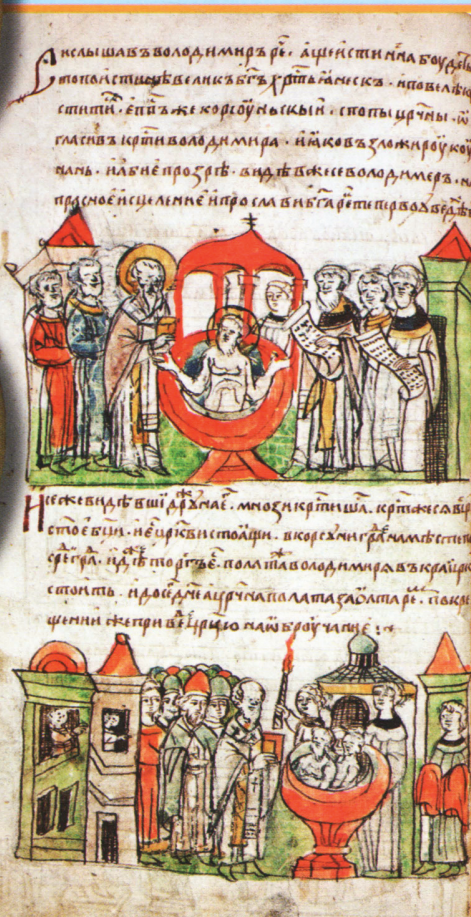 И слышавъ володимиръ ре҇ . аще истинна боуде҇
то поистинѣ великъ бг҃ъ хр҃тьꙗнескъ . и повелѣ
стити . еп҃пъ же корсоуньскыи . с попы цр҃чины . ѡ
гласивъ кр҃ти володимира . и ꙗко възложи роукоу
нань . и абие прозрѣ . видѣв же се володимеръ . на
прасное исцеление и прослави бг҃а ре
Се же видѣвши дружина е҇ . мнози кр҃тишас . кр҃т же сѧ в
ст҃ое бц҃и . и е҇ црк҃ви стоꙗщи . в корсуни гра҇ на мѣсте
сре҇ гра҇ . идѣже торгъ . полата володимирѧ въ краи црк҃
стоить . и до сего дн҃е а цр҃чина полата за олтаре҇ . по кре
щении же приве҇ цр҃цю на ѡброучание :